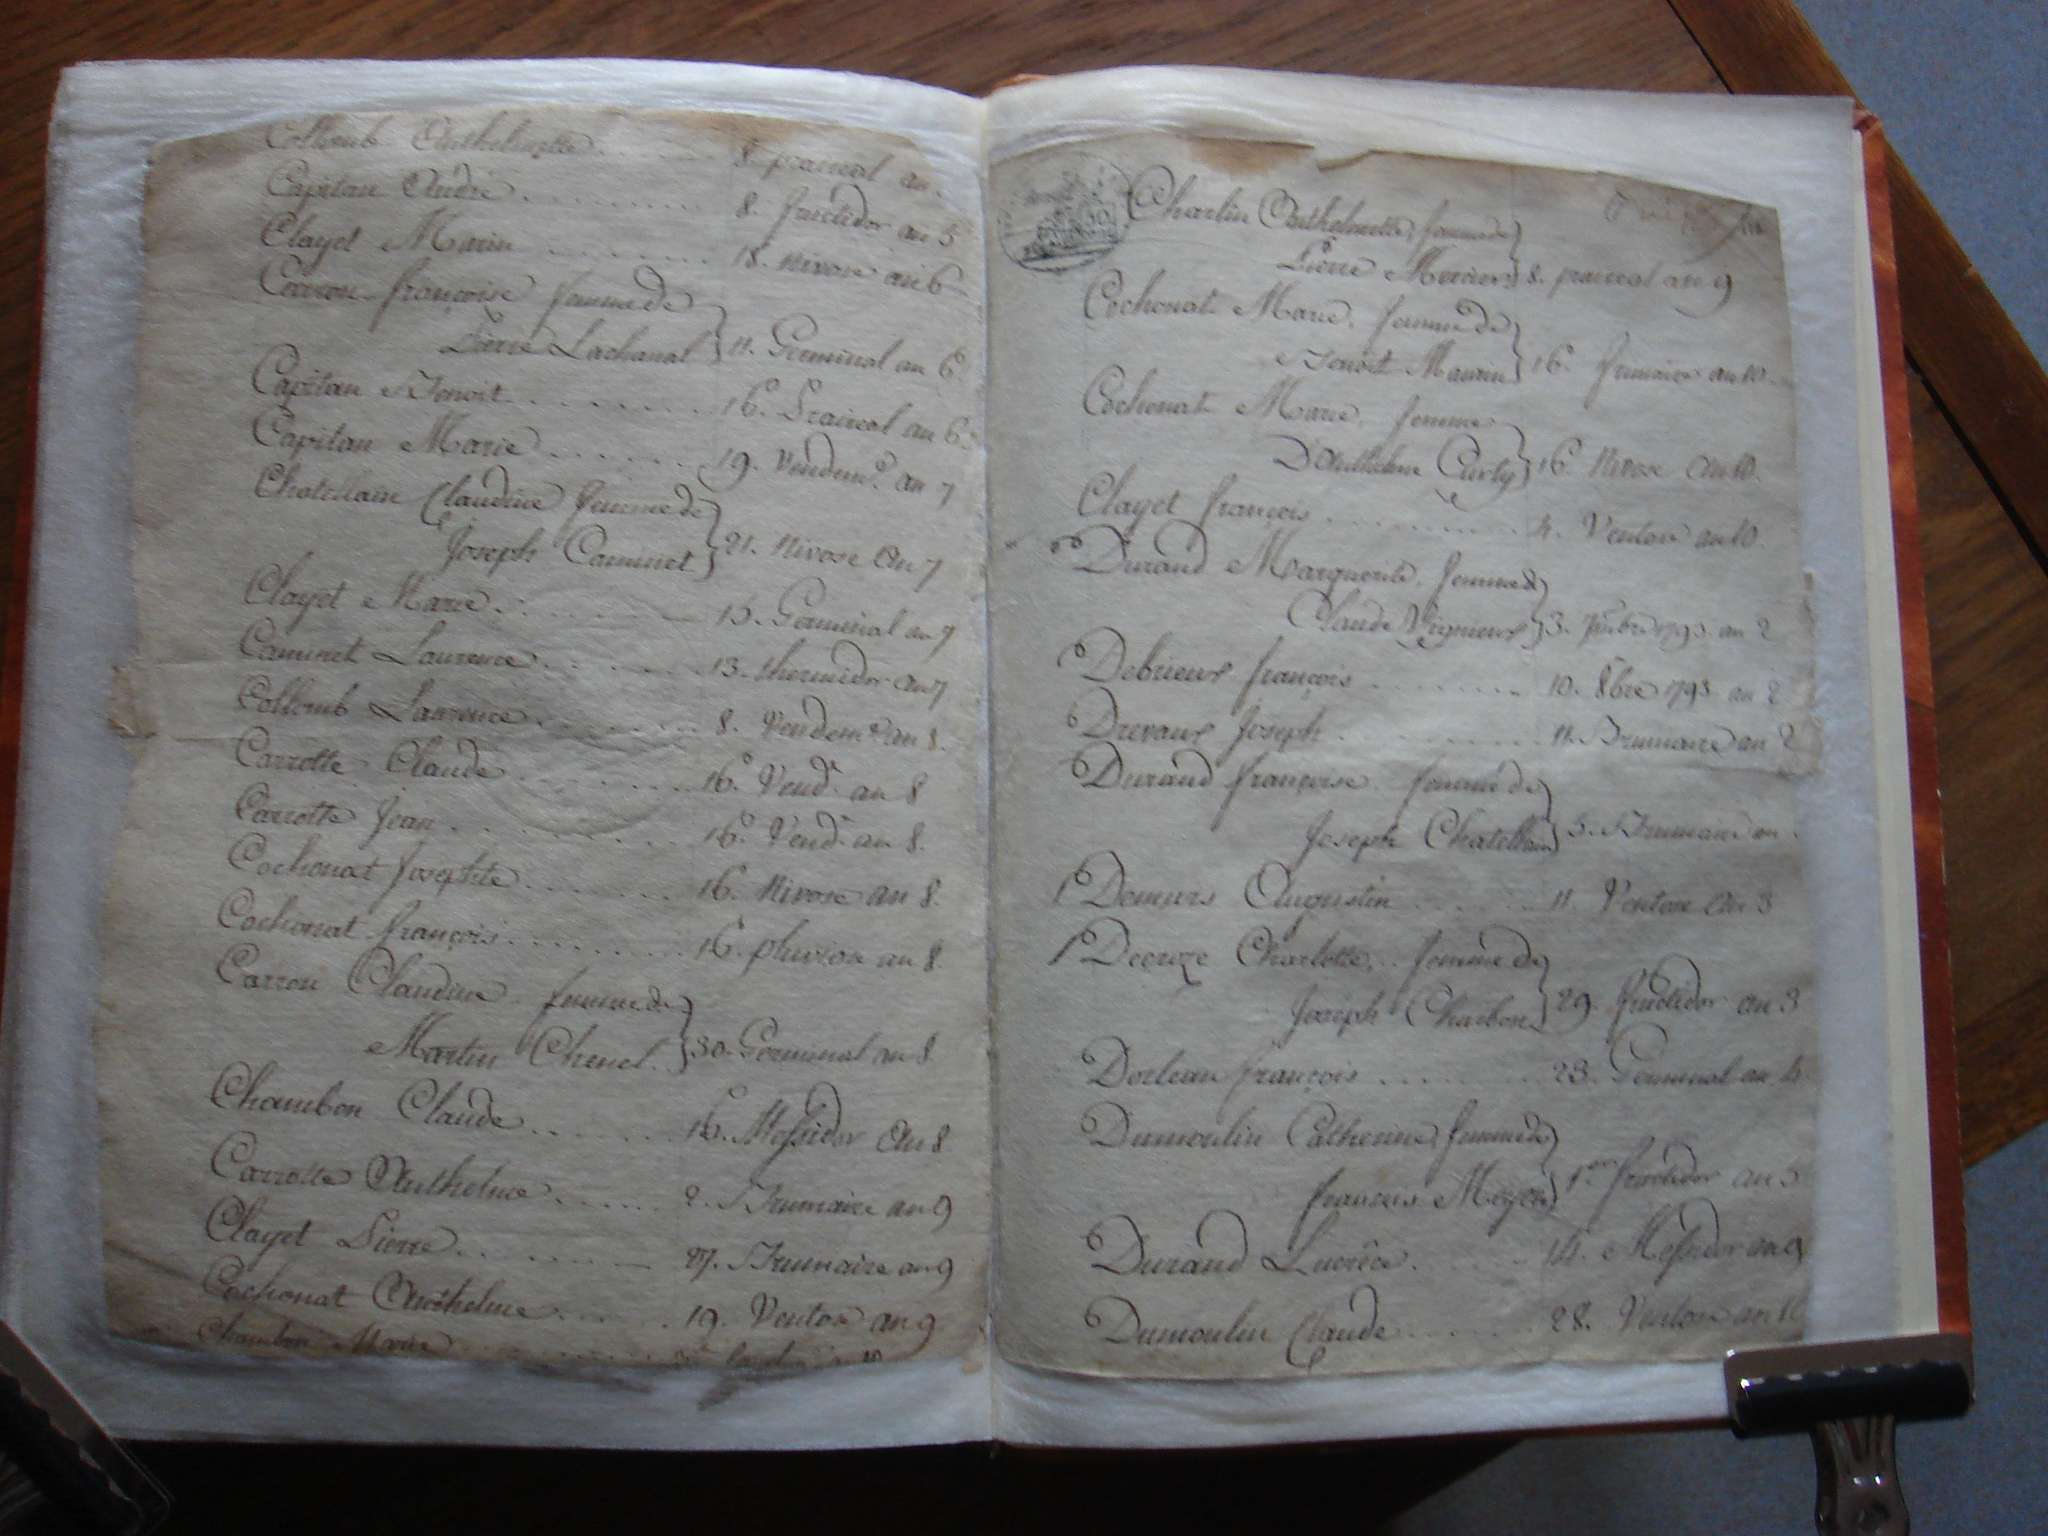 Collomb Anthelmette 8. prairial an
Capitan André 8. fructidor an 5
Clayet Marin 18. Nivose an 6
Carron françoise femme de
Pierre Lachanal 11. Germinal an 6.
Capitan Benoit 16. Prairial an 6.
Capitan Marie 19. Vendem.re an 7
Chatellain Claudine femme de
Joseph Caminet 21. Nivose an 7
Clayet Marie 15. Germinal an 7
Caminet Laurence 13. thermidor an 7
Collomb Laurence 8. Vendem.re an 8.
Carrotte Claude 16. Vend.re an 8
Carrotte Jean 16. Vend.re an 8.
Cochonat Josephte 16. Nivose an 8.
Cochonat françois 16. pluviose an 8.
Carron Claudine femme de
Martin Chenel. 30. Germinal an 8.
Chambon Claude 16. Messidor an 8
Carrotte Anthelme 2. Brumaire an 9
Clayet Pierre 27. Brumaire an 9
Cochonat Anthelme 19. Ventose an 9
Chambon Marie
Charlin Anthelmette, femme de
Pierre Mercier 8. prairial an 9
Cochonat Marie, femme de
Benoit Maurin 16. frimaire an 10.
Cochonat Marie, femme
D'Anthelme Curty 16. Nivose an 10.
Clayet françois 4. Ventose an 10.
Durand Marguerite, femme de
Claude 3. 7bre 1793. an 2
Debrieux françois 10. 8bre 1793. an 2
Drevaux Joseph 11. Brumaire an 2
Durand françoise femme de
Joseph Chatellain 5. Brumaire an
Demeurs Augustin 11. Ventose an 3
Decroze Charlotte, femme de
Joseph Charbon 29. fructidor an 3
Dorleau françois 23. Germinal an 4
Dumoulin Catherine, femme de
francois Meyer 1er fructidor an 5
Durand Lucrèce 14. Messidor an 9
Dumoulin Claude 28. Ventose an 10